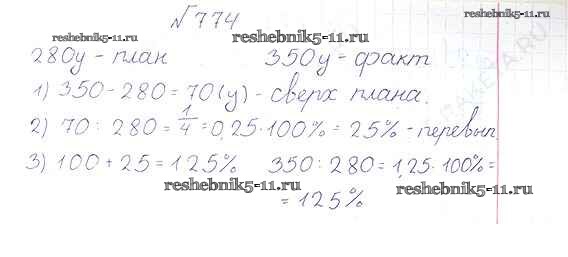 №774
reshebnik5-11.ru reshebnik5-11.ru
280у - план 350у - факт
1) 350 - 280 = 70(у) - сверх плана.
2) 70 : 280 = 1/4 = 0,25·100% = 25% - перевып.
3) 100 + 25 = 125% 350 : 280 = 1,25·100% =
reshebnik5-11.ru reshebnik5-11.ru
= 125%